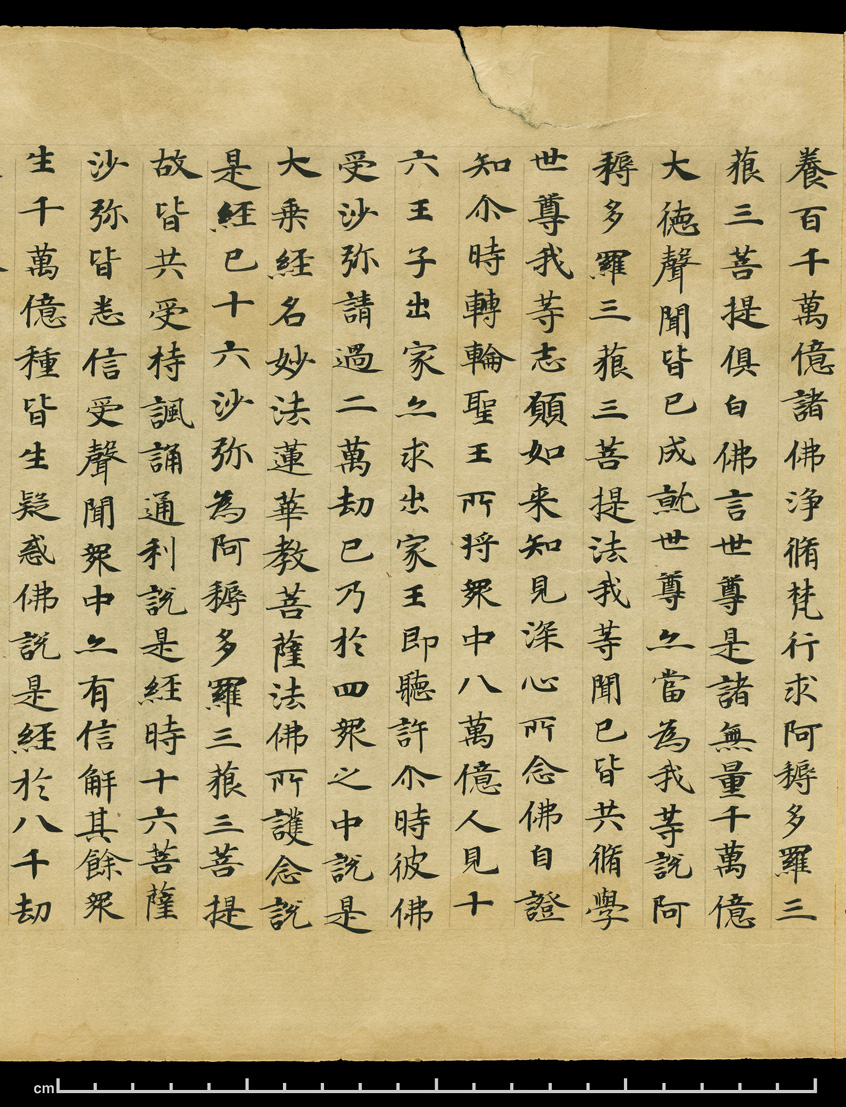 養百千萬億諸佛淨脩梵行求阿耨多羅三
藐三菩提俱白佛言世尊是諸無量千萬億
大德聲聞皆已成就世尊亦當為我等說阿
耨多羅三藐三菩提法我等聞已皆共脩學
世尊我等志願如来知見深心所念佛自證
知尒時轉輪聖王所将眾中八萬億人見十
六王子出家亦求出家王即聽許尒時彼佛
受沙弥請過二萬劫已乃於四眾之中說是
大乘経名妙法蓮華教菩薩法佛所護念說
是経已十六沙弥為阿耨多羅三藐三菩提
故皆共受持諷誦通利說是経時十六菩薩
沙弥皆悉信受聲聞眾中亦有信解其餘眾
生千萬億種皆生疑惑佛說是経於八千劫
cm